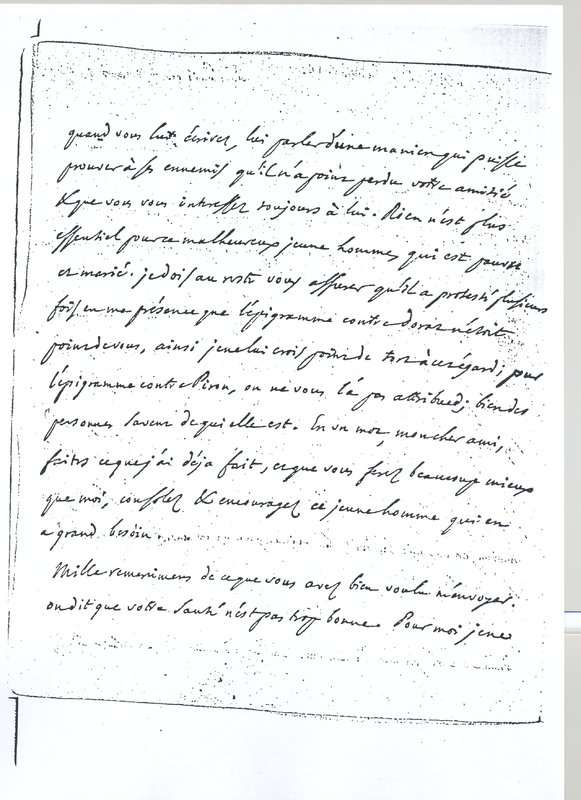 quand vous lui écrivez, lui parler d'une maniere qui puisse
prouver à ses ennemis qu'il n'a point perdu votre amitié
& que vous vous intéressez toujours à lui. Rien n'est plus
essentiel pour ce malheureux jeune homme, qui est pauvre
et marié. je dois au reste vous assurer qu'il a protesté plusieurs
fois en ma présence que l'épigramme contre Dorat n'étoit
point de vous, ainsi je ne lui crois point de tort à cet égard; pour
l'épigramme contre Piron, on ne vous l'a pas attribuée; bien des
personnes savent de qui elle est. En un mot, mon cher ami,
faites ce que j'ai déja fait, et que vous ferez beaucoup mieux
que moi, consolez & encouragez ce jeune homme qui en
a grand besoin.
Mille remerimens de ce que vous avez bien voulu m'envoyer.
on dit que votre santé n'est pas trop bonne. Pour moi je ne